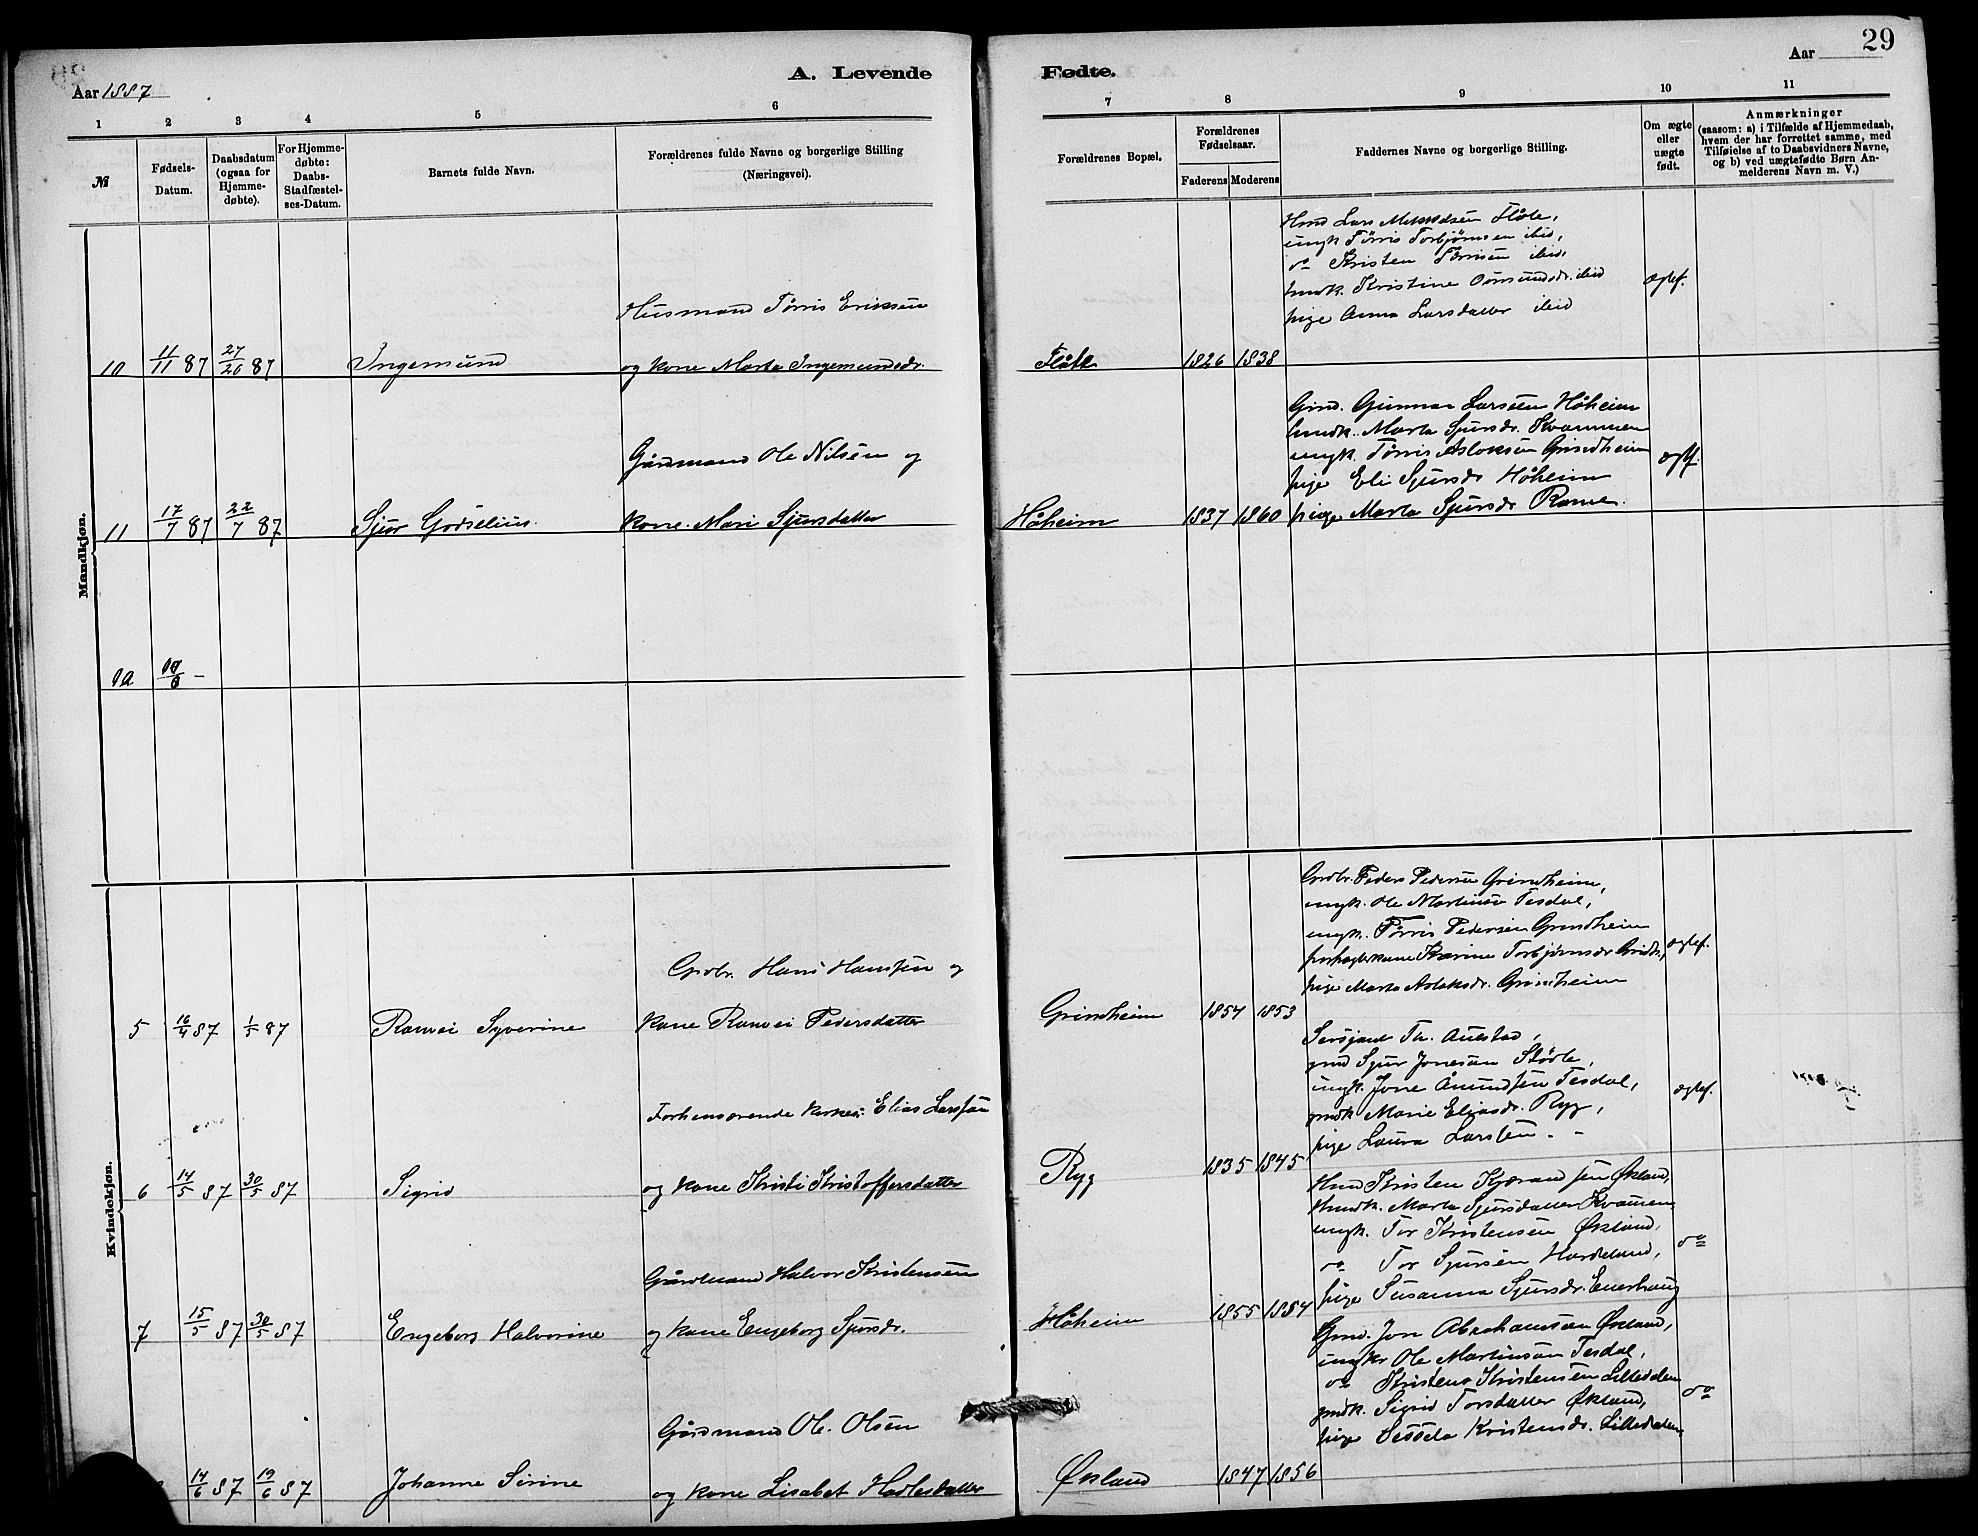 A. Levende
Fødte.
29
Aar 1887
Aar
1 2 3 4 5 6 7 8 9 10 11
№
Fødsels-
Datum.
Daabsdatum
(ogsaa for
Hjemme-
døbte).
For Hjemme-
døbte:
Daabs-
Stadfæstel-
ses-Datum.
Barnets fulde Navn.
Forældrenes fulde Navne og borgerlige Stilling
(Næringsvei).
Forældrenes Bopæl.
Forældrenes
Fødselsaar.
Faderens Moderens
Faddernes Navne og borgerlige Stilling.
Om ægte
eller
uægte
født.
Anmærkninger
(saasom: a) i Tilfælde af Hjemmedaab,
hvem der har forrettet samme, med
Tilføielse af to Daabsvidners Navne,
og b) ved uægtefødte Børn An-
melderens Navn m. V.)
Mandkjøn.
10 11/11 87 27/20 87 Ingemund
Husmand Tørris Eriksen
og kone Marta Ingemundsdr.
Flåte 1826 1838
Hmd Lars Flåte,
ungk Tørris Torbjørnsen ibid,
do Kristen Tørrisen ibid,
hmdk. Kristine Åmundsdr. ibid
pige Anna Larsdatter ibid
ægtef.
11 17/7 87 22/7 87 Sjur Godselius.
Gårdmand Ole Nilsen og
kone Mari Sjursdatter
Håheim 1837 1860
Gmd. Gunnar Larsen Håheim
hmdk. Marta Sjursdr. Kvammen
ungk. Tørris Aslaksen Grindheim
pige Eli Sjursdr Håheim
pige Marta Sjursdr Rame
ægtf.
Kvindekjøn.
5 16/4 87 1/5 87 Ranvei Syverine
Grdbr. Hans Hansen og
kone Ranvei Pedersdatter
Grindheim 1854 1853
Grdbr. Peder Pedersen Grindheim,
ungk. Ole Martinsen Tesdal,
ungk. Tørris Pedersen Grindheim
Karine Torbjørnsdr
pige Marta Aslaksdr. Grindheim
ægtef.
6 14/5 87 30/5 87 Sigrid
Forhenværende Elias Larssen
og kone Kristi Kristoffersdatter
Ryg 1835 1845
Sersjant Th. Austad,
gmd Sjur Jonesen Støle,
ungk. Jone Åmundsen Tesdal,
gmdk Marie Eliasdr. Ryg,
pige Laura Larsten. -
ægtef.
7 15/5 87 30/5 87 Engeborg Halvorine
Gårdmand Halvor Kristensen
og kone Engeborg Sjursdr.
Håheim 1855 1854
Hmd Kristen Kjøransen Økland,
hmdk. Marta Sjursdatter Kvamen,
ungk. Tor Kristensen Økland,
do Tor Sjursen Hardeland,
pige Susanna Sjursdr. Enerhaug
do
14/6 87 19/6 87 Johanne Serine
Gårdmand Ole Olsen
og kone Lisabet Hadlesdatter
Økland 1847 1856
Gmd. Jon Abrahamsen Økland,
ungkr Ole Martinsen Tesdal,
do Kristen Kristensen Lilledalen
gmdk. Sigrid Torsdatter Økland,
pige Sessela Kristensdr. Lilledalen
do